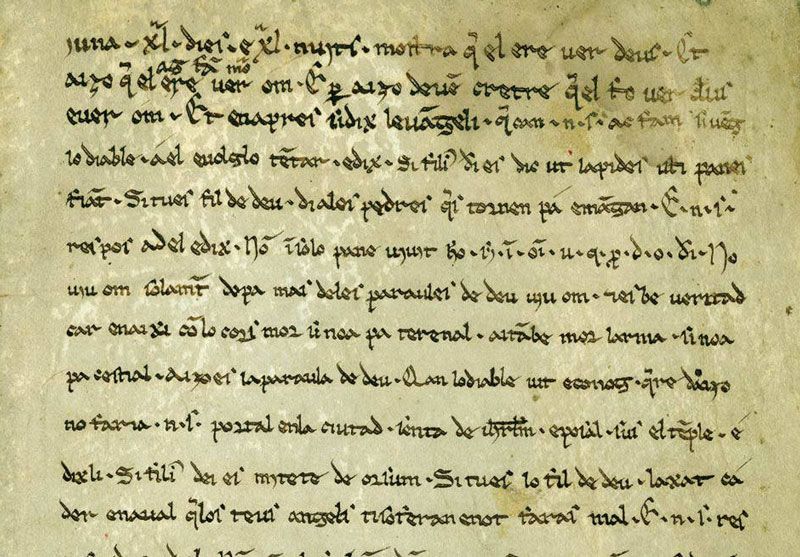 juna · xl · dies · e xl · nuits · mostra q̄ el ere ver deus · Et
aizo q̄l el ere ver om · E p̲ aizo devē cretre q̄ el fo ver deus
ag fā mō
ever om · Et enapres ūdix levāgeli · q̄can · n · s · ac fam si vēg
lo diable · a el evolglo tētar · edix · Si fili' di es dic ut lapides isti panes
fiāt · Si tu es fil de deu · di a les pedres q̄s tornen pā e māgan · E · n · s̄
respos ad el edix · Nō ī solo pane vivit ho · s · ī · oī · v · q · p · d · o · dī · No
viu om solamt̄ de pa mas de les paraules de deu viu om · 7 es be veritad
car enaixi cō lo cors mor si noa pa terenal · aitābe mor larma · si noa
pa celestial · Aizo es la paraula de deu · Qan lo diable vit econog · q̄re daizo
no faria · n · s · portal en la ciutad · senta de ihrlm̄ · e posal · sus el tēple · e
dixli · Si fili' dei es mitete de orsum · Si tu es lo fil de deu · laxat ca
der enaval q̄ los teus angels ti sosteran e not faras mal · E · n · s · res